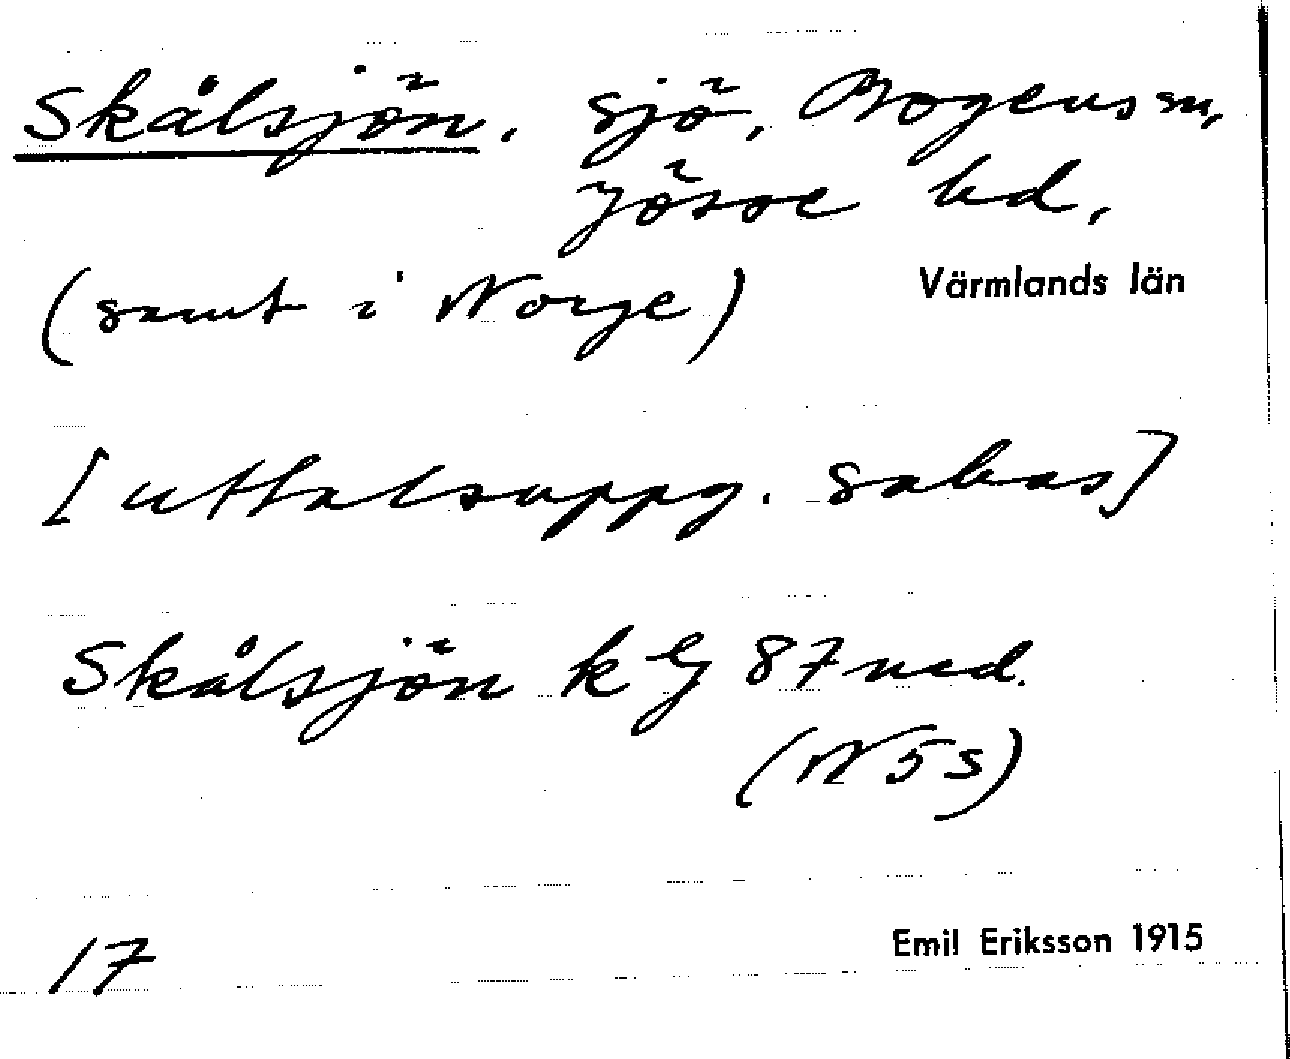 Skålsjön. sjö, Bogens sn,
Jösse hd,
(samt i Norge) Värmlands län
[uttalsuppg. saknas]
Skålsjön k Bl 87 ned.
(N 5 s)
17 Emil Eriksson 1915